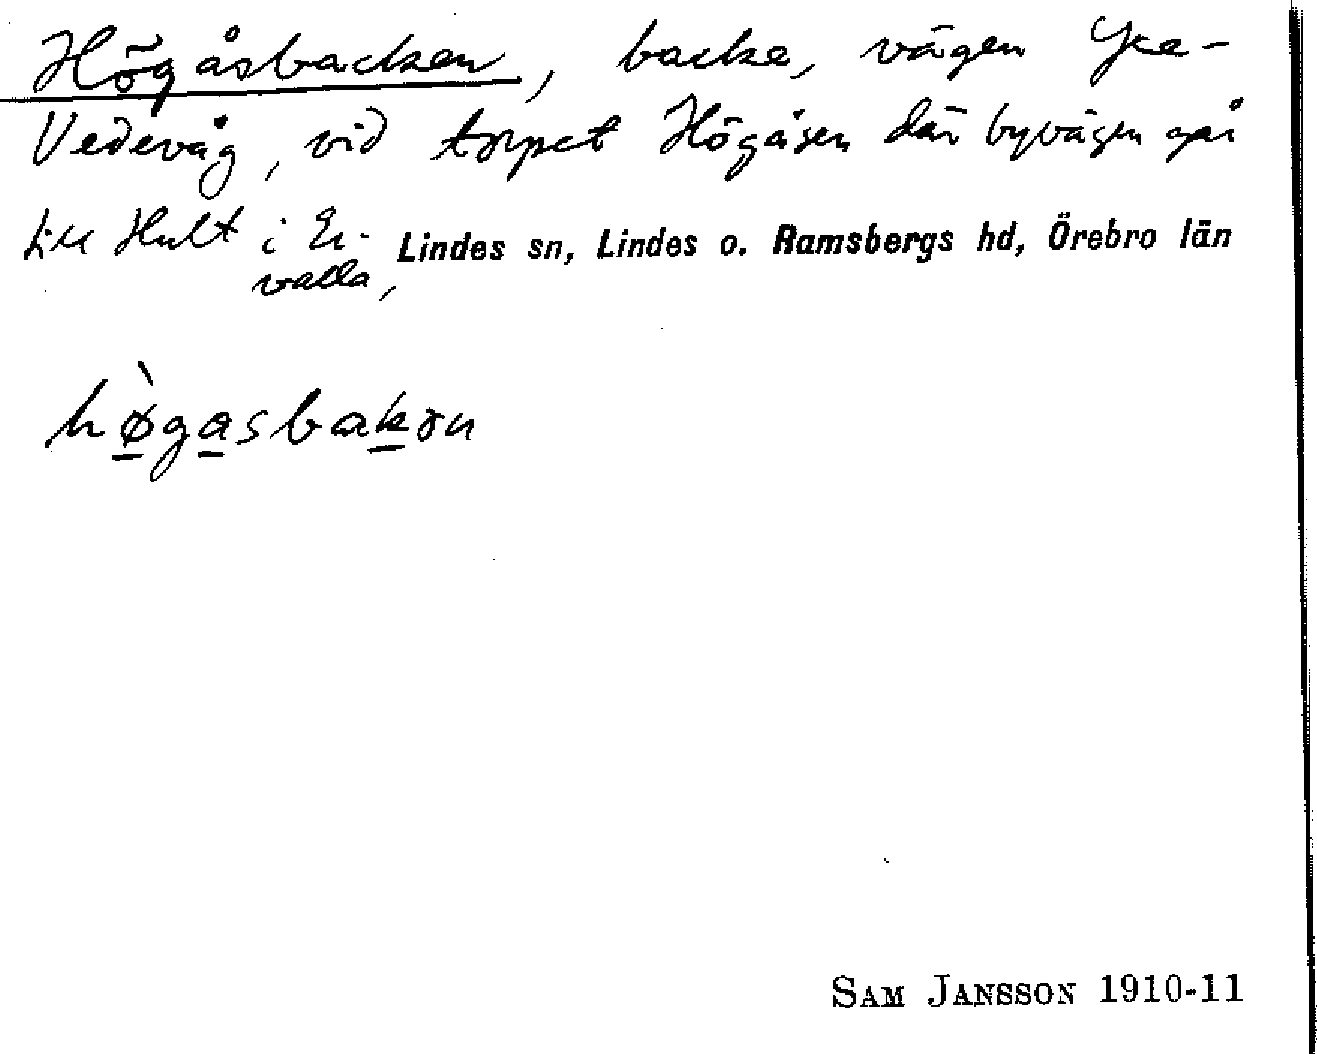 Högåsbacken, backe, vägen Yxe-
Vedevåg, vid torpet Högåsen där byvägen går
till Hult i Er-
valla,
Lindes sn, Lindes o. Ramsbergs hd, Örebro län
hø̀gasbakən
SAM JANSSON 1910-11